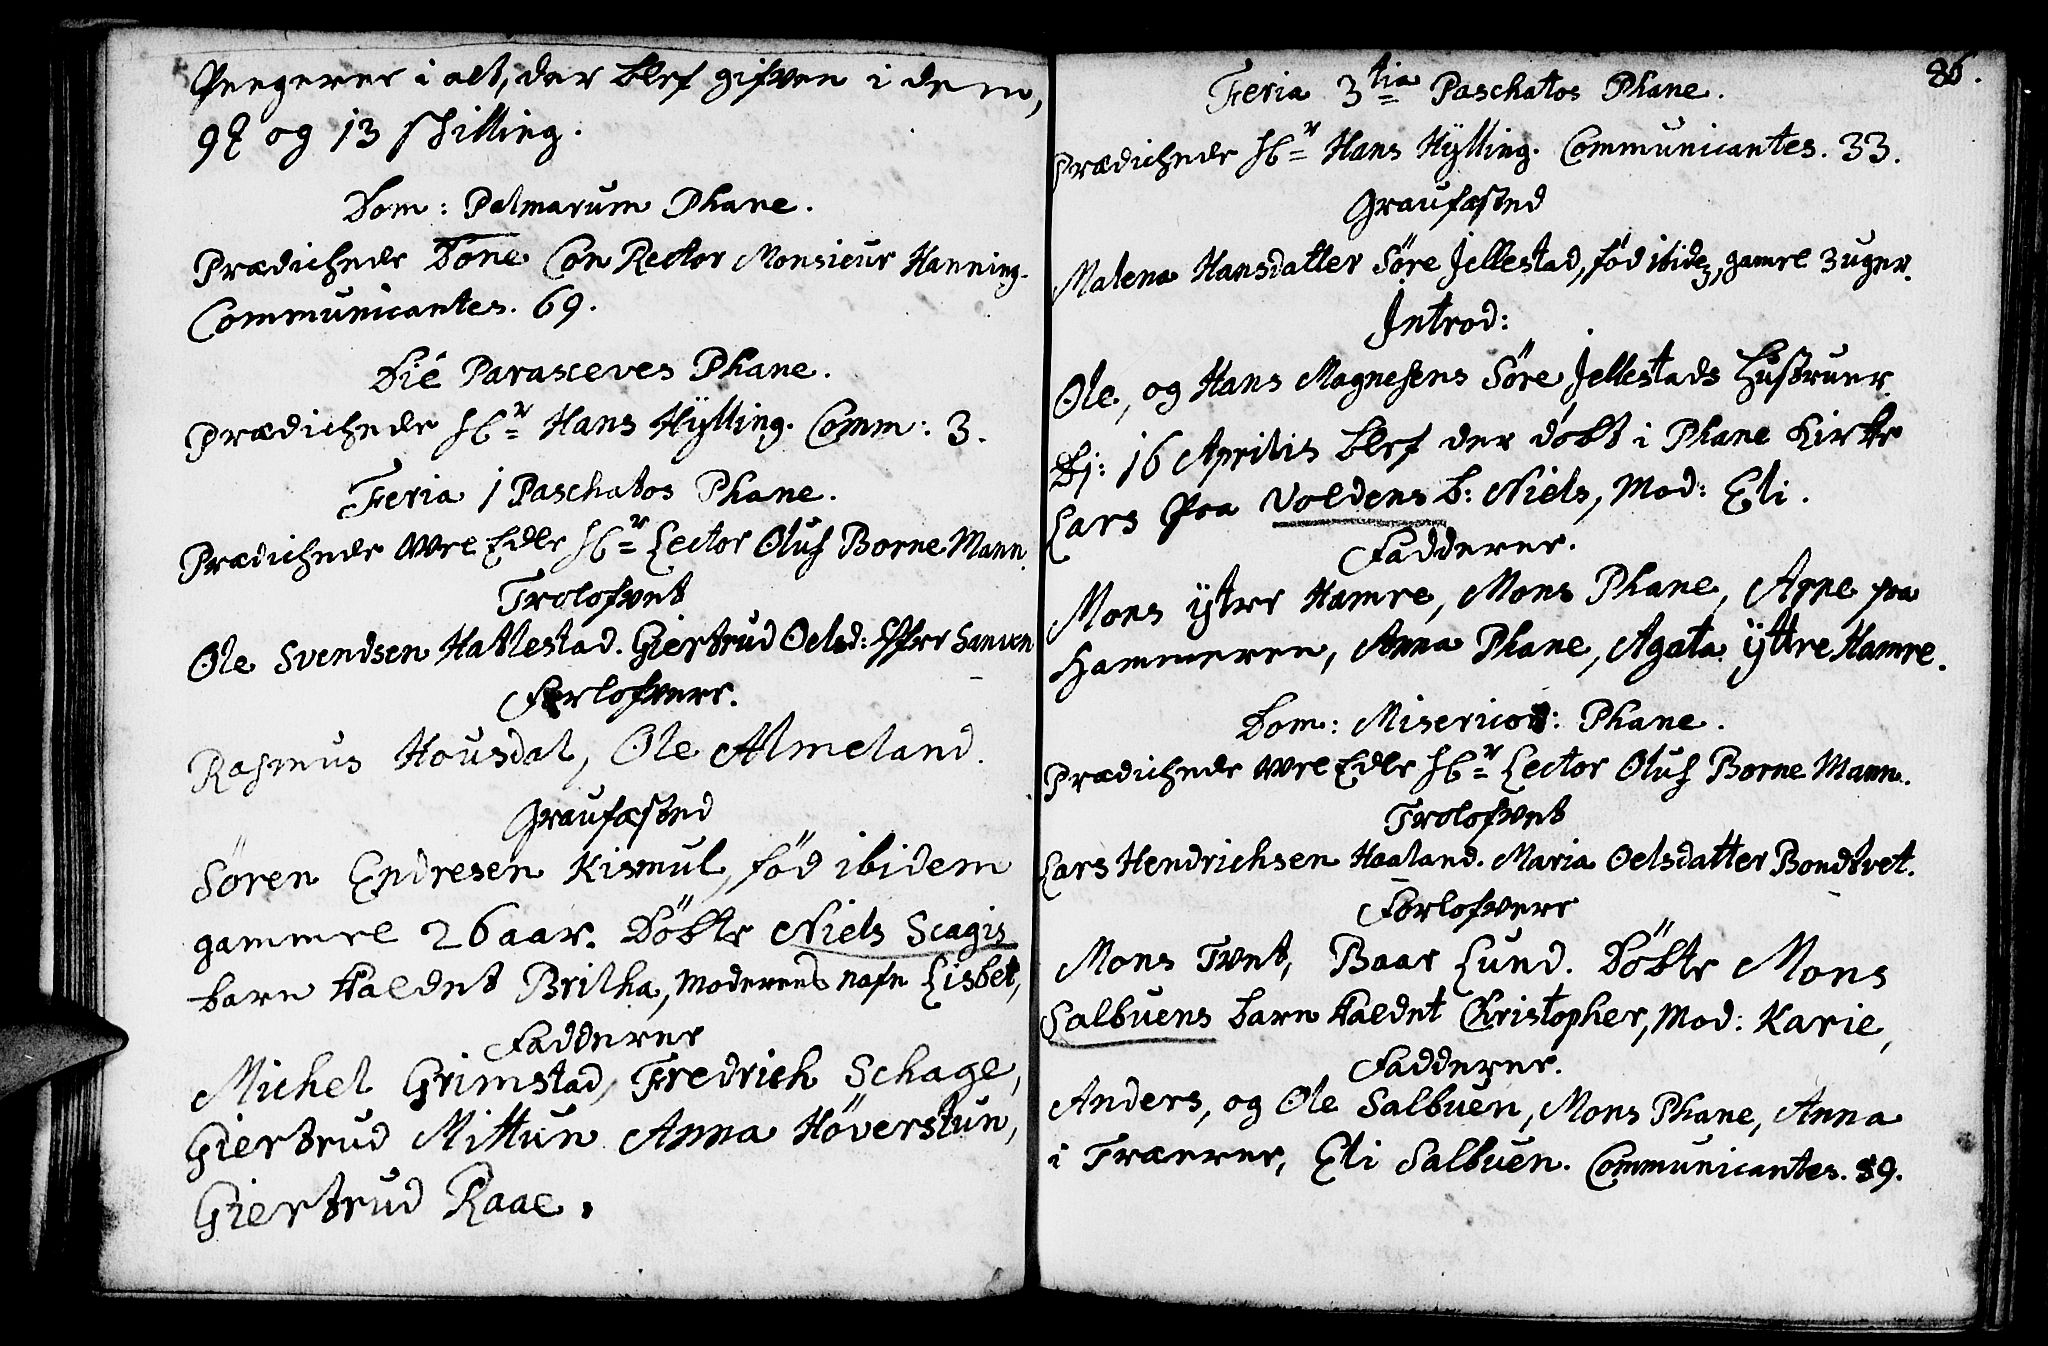 Pengerne i alt, der blef gifven i dem,
og 13 skilling.
Dom: Palmarum Phane.
Prædichede Dõne Con Rector Monsieur Hanning.
Communicantes. 69.
Die Parasceves Phane.
Prædichede Hr Hans Hÿlling. Comm: 3.
Feria 1 Paschatos Phane.
Prædichede Wel Edle Hr Lector Oluf Borne Mann.
Trolofvet
Ole Svendsen Hatlestad. Giertrud Oelsd:
Forlofvere.
Rasmus Housdal, Ole Almeland.
Graufæsted
Sören Endresen Kismul, föd ibidem
gammel 26 aar. Döbte Niels Scagis
barn kaldet Britha, moderens nafn Lisbet,
Fadderne
Michel Grimstad, Fredrich Schage,
Giertrud Mittun Anna Höverstun,
Giertrud Raae.
86.
Feria 3tia Paschatos Phane.
Prædichede Hr Hans Hÿlling. Communicantes. 33.
Graufæsted
Malena Hansdatter Söre Jellestad, föd ibidem, gamel 3 uger.
Introd:
Ole, og Hans Magnesens Söre Jellestads Hustruer.
Dj: 16 Aprilis blef der döbt i Phane Kirke
Lars paa Voldens b: Niels, Mod: Eli.
Fadderne.
Mons ÿtre Hamre, Mons Phane, Arne paa
Hammeren, Anna Phane, Agata ÿttre Hamre.
Dom: Misericor: Phane.
Prædichede Wel Edle Hr Lector Oluf Borne Mann.
Trolofvet
Lars Hendrichsen Haaland. Maria Oelsdatter Bondtvet.
Forlofvere
Mons Tvet, Baar Lund. Döbte Mons
Salbuens barn kaldet Christopher, Mod: Karie,
Fadderne.
Anders, og Ole Salbuen, Mons Phane, Anna
i Træerne, Eli Salbuen. Communicantes. 89.